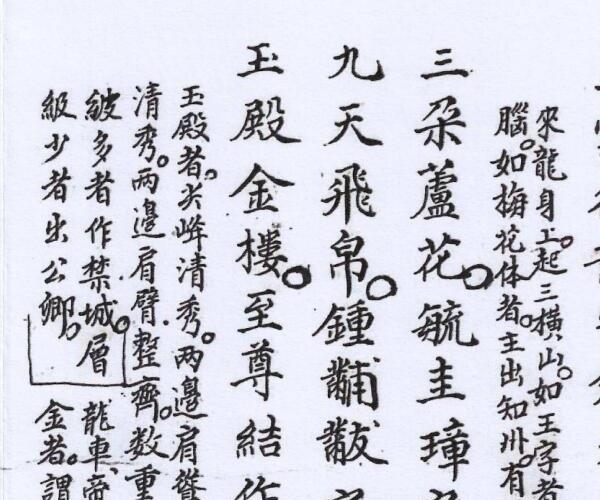 來龍身上。起三橫山。如王字者
腦。如梅花体者。主出知州。有
三朶蘆花。毓圭璋
九天飛帛。鍾黼黻
玉殿金樓。至尊結作
玉殿者。尖峰清秀。兩邊肩聳
清秀。兩邊肩臂整齊。數重
級多者作禁城。層
級少者出公卿。
龍車帝
金者。謂